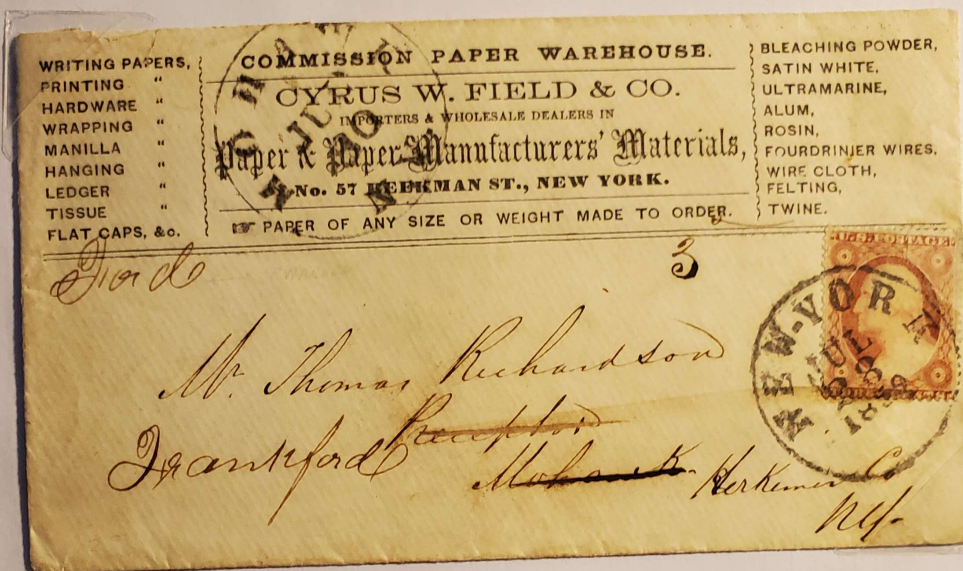 WRITING PAPERS,
PRINTING "
HARDWARE "
WRAPPING "
MANILLA "
HANGING "
LEDGER "
TISSUE "
FLAT CAPS, &c.
COMMISSION PAPER WAREHOUSE.
CYRUS W. FIELD & CO.
IMPORTERS & WHOLESALE DEALERS IN
Paper & Paper Manufacturers' Materials,
No. 57 BEEKMAN ST., NEW YORK.
☞ PAPER OF ANY SIZE OR WEIGHT MADE TO ORDER.
BLEACHING POWDER,
SATIN WHITE,
ULTRAMARINE,
ALUM,
ROSIN,
FOURDRINIER WIRES,
WIRE CLOTH,
FELTING,
TWINE.
JUL
30
3
U.S. POSTAGE
NEW-YORK
JUL
1859
Mr. Thomas Richardson
Frankford
Mohawk Herkimer Co
NY.